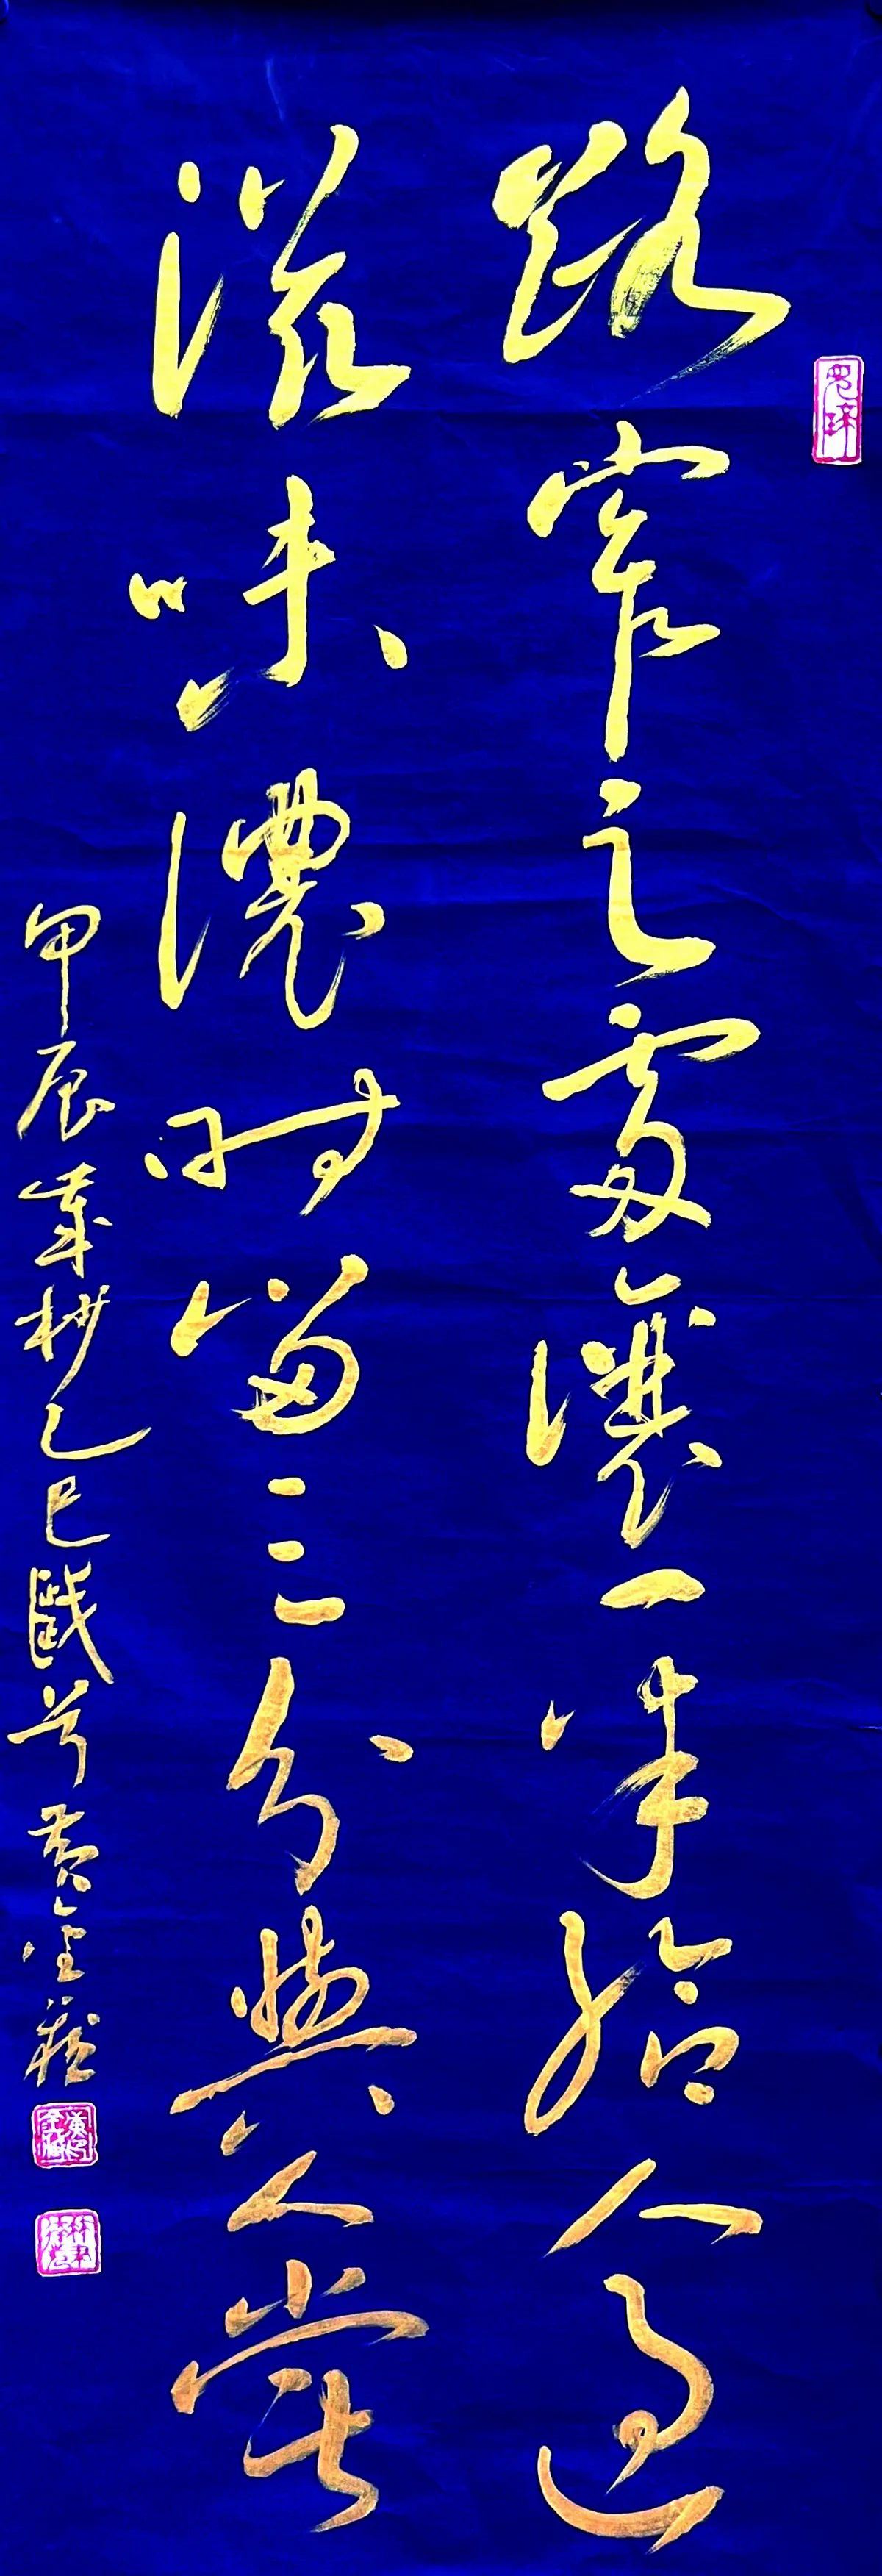 路窄之處讓一步給人過
滋味濃時留三分與人嘗
甲辰歲杪乙巳
黃金